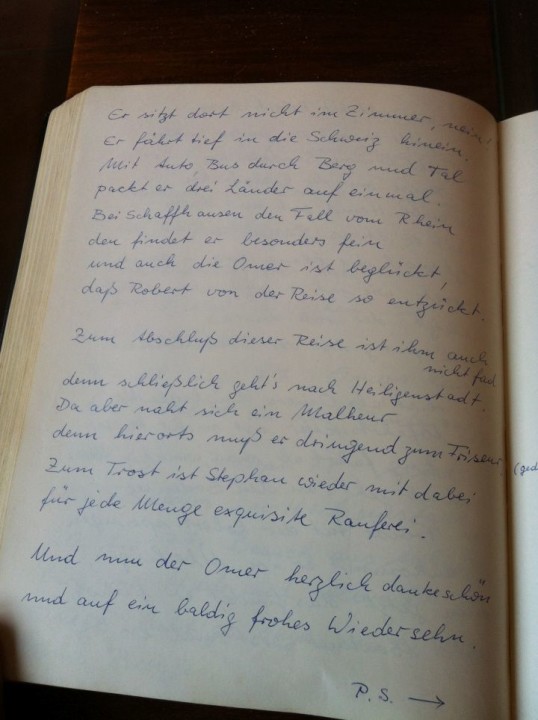 Er sitzt dort nicht im Zimmer, nein!
Er fährt tief in die Schweiz hinein.
Mit Auto, Bus durch Berg und Tal
packt er drei Länder auf einmal.
Bei Schaffhausen den Fall vom Rhein
den findet er besonders fein
und auch die Omer ist beglückt,
daß Robert von der Reise so entzückt.
Zum Abschluß dieser Reise ist ihm auch
nicht fad
denn schließlich geht's nach Heiligenstadt.
Da aber naht sich ein Malheur
denn hierorts muß er dringend zum Friseur.
Zum Trost ist Stephan wieder mit dabei
für jede Menge exquisite Rauferei.
Und nun der Omer herzlich dankeschön
und auf ein baldig frohes Wiedersehn.
P.S. →